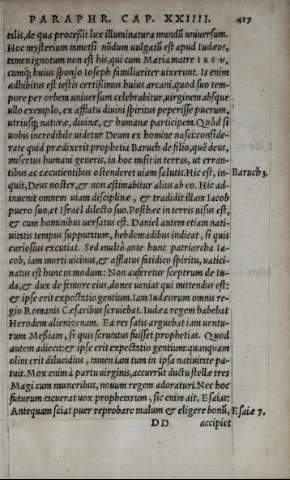 PARAPHR. CAP. XXIIII. 417
talis, de qua processit lux illuminatura mundũ universum.
Hoc mysterium tametsi nõdum vulgatũ est apud Iudæos,
tamen ignotum non est his, qui cum Maria matre IESV,
cumq́; huius sponso Ioseph familiariter vixerunt. Is enim
adhibitus est testis certissimus huius arcani, quod suo tem-
pore per orbem universum celebrabitur, virginem absque
ullo exemplo, ex afflatu divini spiritus peperisse puerum,
utriusq; naturæ, divinæ, & humanæ participem. Quòd si
vobis incredibile videtur Deum ex homine nasci: conside-
rate quid prædixerit propheta Baruch de filio, quẽ deus,
misertus humani generis, in hoc misit in terras, ut erran-
tibus ac cæcutientibus ostenderet viam salutis. Hic est, in- Baruch 3.
quit, Deus noster, & non æstimabitur alius ab eo. Hic ad-
invenit omnem viam disciplinæ, & tradidit illam Iacob
puero suo, et Israël dilecto suo. Posthæc in terris visus est,
& cum hominibus versatus est. Daniel autem etiam nati-
vitatis tempus supputatum, hebdomadibus indicat, si quis
curiosius excutiat. Sed multò ante hunc patriarcha Ia-
cob, iam morti vicinus, & afflatus fatidico spiritu, vatici-
natus est hunc in modum: Non auferetur sceptrum de Iu-
da, & dux de femore eius, donec veniat qui mittendus est:
& ipse erit expectatio gentium. Iam Iudæorum omnis re-
gio Romanis Cæsaribus serviebat. Iudæa regem habebat
Herodem alienigenam. Ea res satis arguebat iam ventu-
rum Messiam, si quis scrutatus fuisset prophetias. Quod
autem adiecit: & ipse erit expectatio gentium: quanquam
olim erit dilucidius, tamen iam tum in ipsa nativitate pa-
tuit. Mox enim à partu virginis, accurrũt ductu stellæ tres
Magi cum muneribus, novum regem adoraturi. Nec hoc
futurum tacuerat vox prophetarum, sic enim ait, Esaias:
Antequam sciat puer reprobare malum & eligere bonũ, Esaiæ 7.
DD accipiet